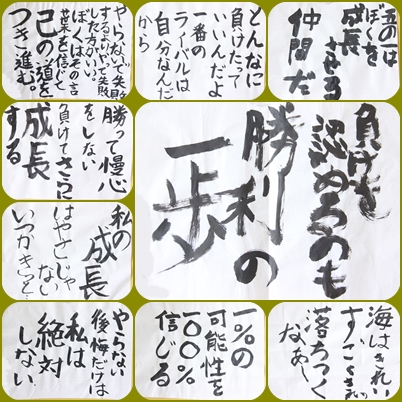 やらないで失敗
するよりやって失敗
した方がいい。
ぼくはその言
葉を信じて
己の道を
つき進む。
どんなに
負けたて
いいんだよ
一番の
ライバルは
自分なんだ
から
五の一は
ぼくを
成長
させる
仲間だ
勝って慢心
をしない
負けてさらに
成長
する
負けを
認めるのも
勝利の
一歩
私の
成長
はやさじゃ
ない
いつかきっと…
やらない
後悔だけは
私は
絶対
しない
1%の
可能性を
一〇〇%
信じる
海はきれい
すごく
落ちつく
なあ〜